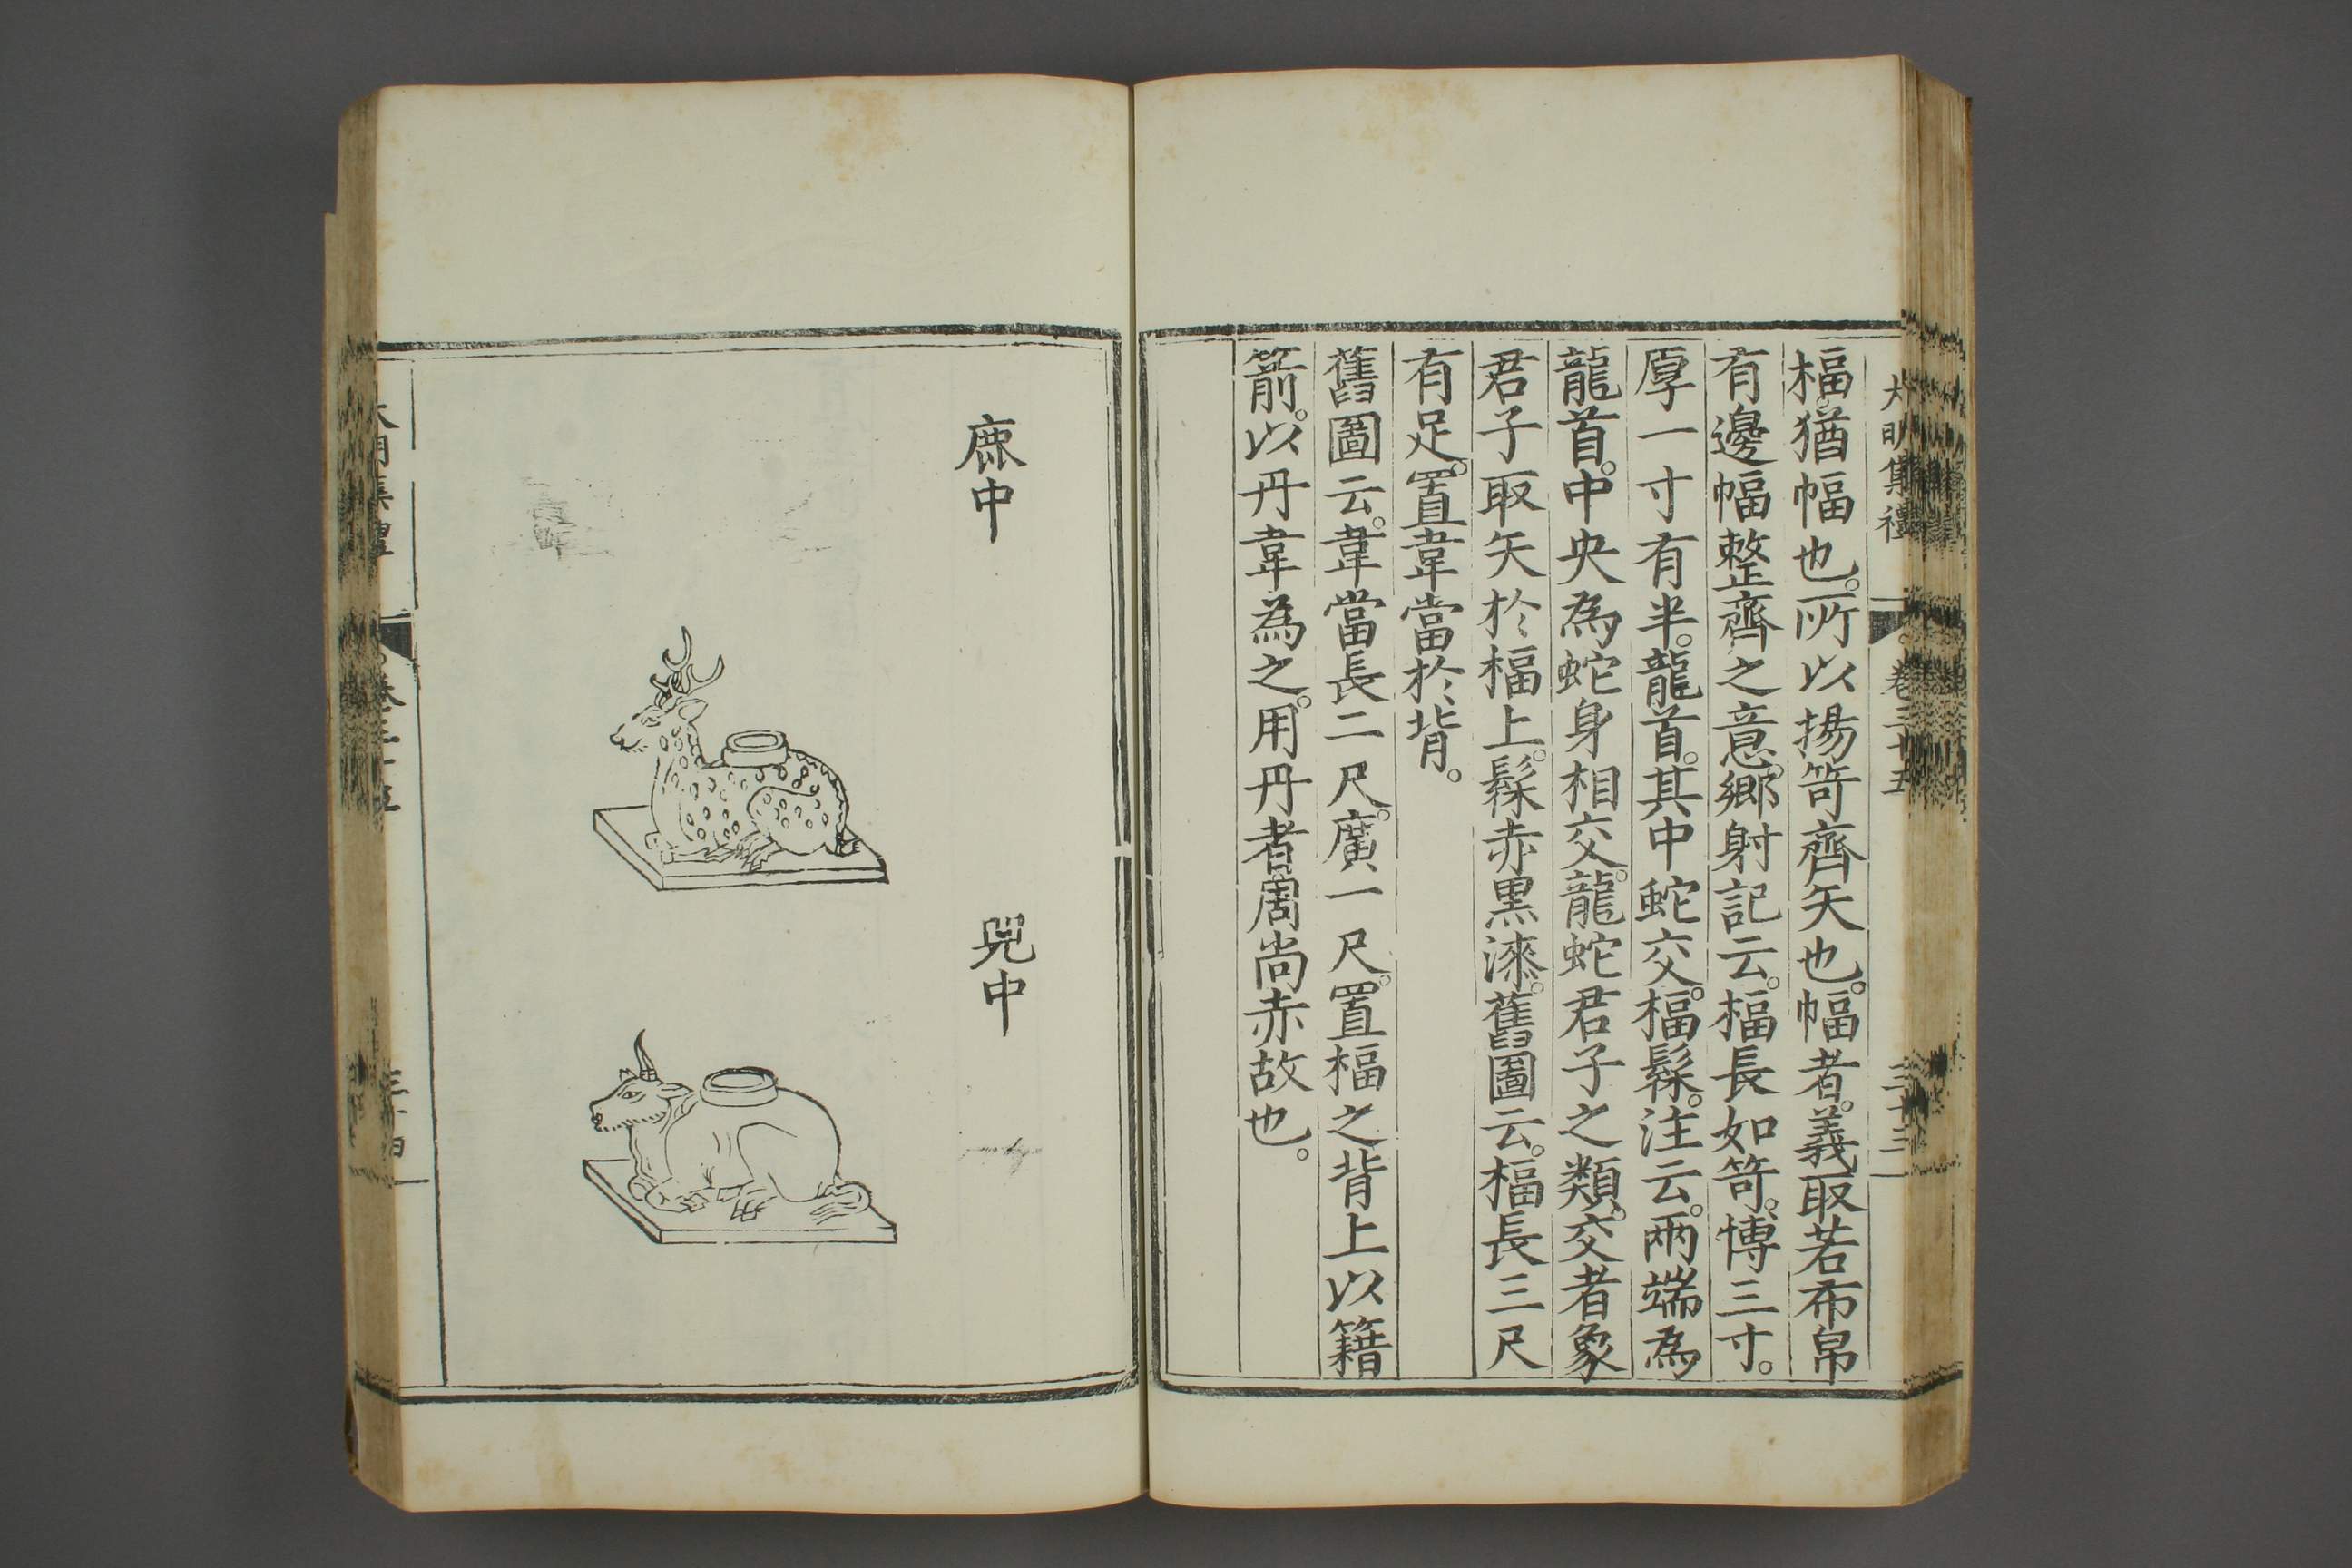 大明集禮 卷三十五 三十三
楅。猶幅也。所以揚笴齊矢也。幅者。義取若布帛
有邊幅整齊之意。鄉射記云。楅長如笴。博三寸。
厚一寸有半。龍首。其中蛇交。楅髹。注云。兩端為
龍首。中央為蛇身相交。龍蛇君子之類。交者象
君子取矢於楅上。髹赤黒漆。舊圖云。楅長三尺
有足。置韋當於背。
舊圖云。韋當長二尺。廣一尺。置楅之背上以籍
箭。以丹韋為之。用丹者。周尚赤故也。
鹿中
兕中